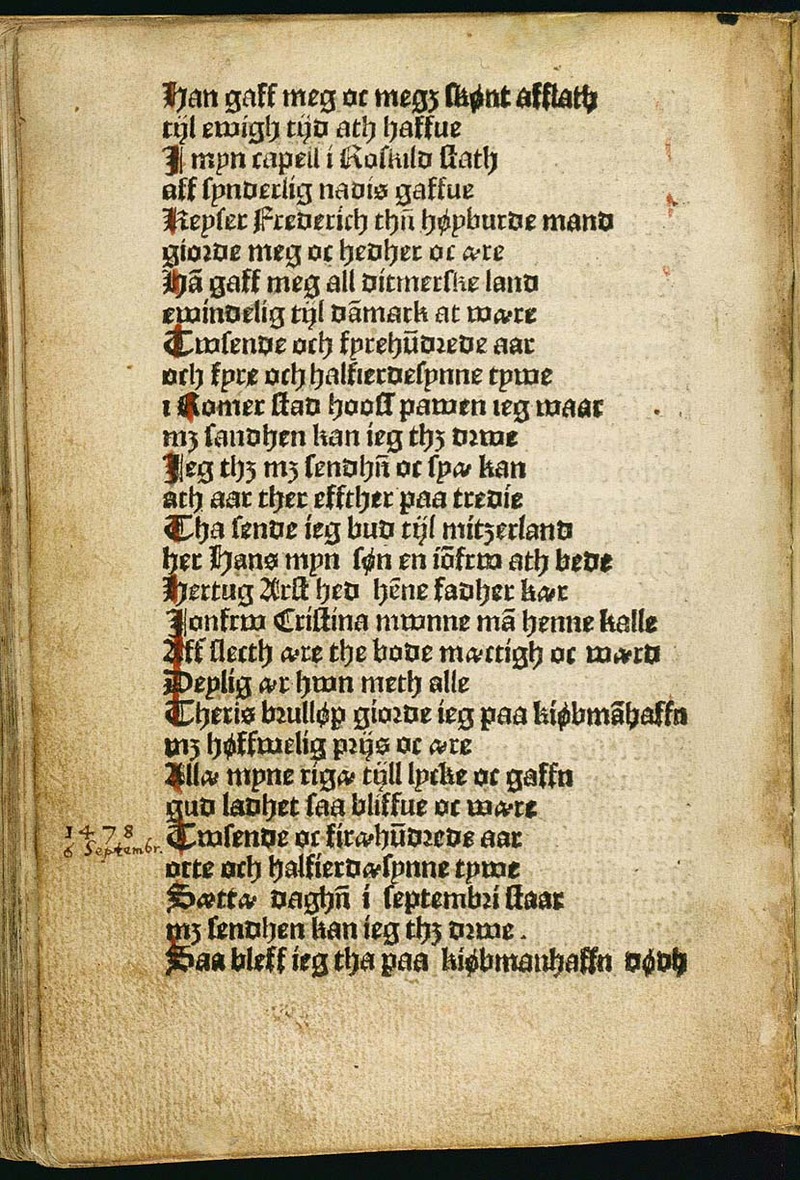 Han gaff meg oc megʒ skønt afflath
tijl ewigh tijd ath haffue
I myn capell i Roskild stath
aff synderlig nadis gaffue
Keyser Frederich thn̄ høyburde mand
giorde meg oc hedher oc ære
Hā gaff meg all ditmerske land
ewindelig tijl dāmark at wære
Twsende och fyrehūdrede aar
och fyre och halfierdesynne tywe
i Romer stad hooss pawen ieg waar
mʒ sandhen kan ieg thʒ drwe
Ieg thʒ mʒ sendhn̄ oc spæ kan
ath aar ther effther paa tredie
Tha sende ieg bud tijl mitzerland
her Hans myn søn en iōfrw ath bede
Hertug Arst hed hēne fadher kær
Jonfrw Cristina mwnne mā henne kalle
Aff slecth ære the bode mæctigh oc wærd
Deylig ær hwn meth alle
Theris brulløp giorde ieg paa kiøbmāhaffn
mʒ høffwelig prijs oc ære
Allæ myne rigæ tijll lycke oc gaffn
gud ladhet saa bliffue oc wære
1478
6 Septembr.
Twsende oc firæhūdrede aar
otte och halfierdæsynne tywe
Sættæ daghn̄ i septembri staar
mʒ sendhen kan ieg thʒ drwe.
Saa bleff ieg tha paa kiøbmanhaffn dødh